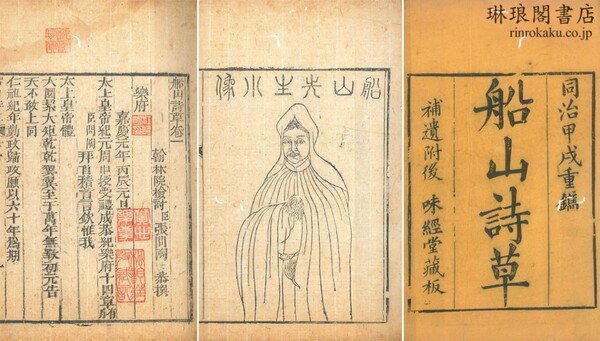 琳琅閣書店
rinrokaku.co.jp
同治甲戌重鐫
船山詩草
補遺附後 味經堂藏板
船山先生小像
船山詩草卷一
翰林院檢討臣張問陶恭撰
樂府
嘉慶元年丙辰元旦
太上皇帝紀元周甲授受禮成恭紀樂府十四章
臣問陶拜首稽首言欽惟我
太上皇帝體
大圜絜大矩乾乾翼翼至于萬年無斁初元告
天不敢上同
仁祖紀年勤政歸政願以六十年為期